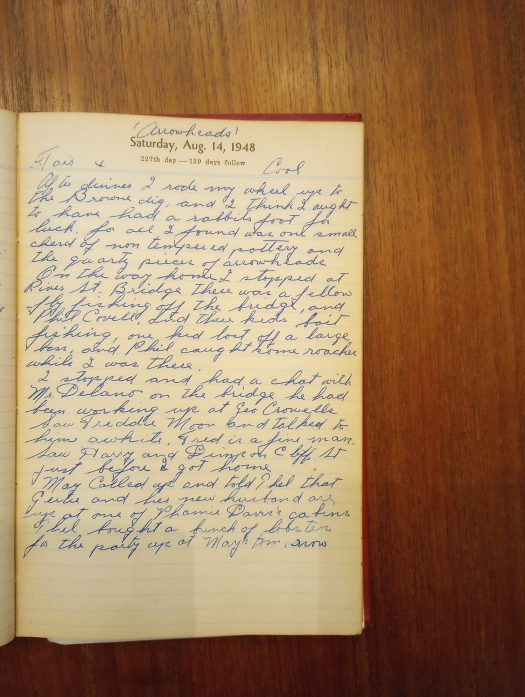 'Arrowheads'
Saturday, Aug. 14, 1948
227th day — 139 days follow
Fair & Cool
After dinner I rode my wheel up to
the Browne dig, and I think I ought
to have had a rabbits foot for
luck. for all I found was one small
cherd of non tempered pottery and
the quartz pieces of arrowheads
On the way home I stopped at
River St. Bridge there was a fellow
fly fishing off the bridge, and
Phil Covell, and three kids bait
fishing, one kid lost off a large
bass, and Phil caught some roaches
while I was there.
I stopped and had a chat with
Mr. Delano on the bridge he had
been working up at Geo Crowells
Saw Freddie Moon and talked to
hime awhile, Fred is a fine man.
Saw Harry and on Cliff St
just before I got home
May Called up and told Ethel that
and her new husband are
up at one of Davis's cabins
Ethel bought a bunch of lobster
for the party up at May's tom. snow